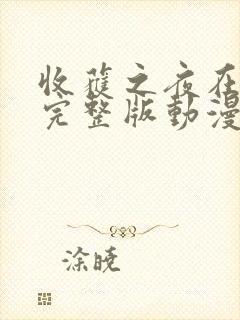 收蘿之夜在
完整版動漫
涂曉